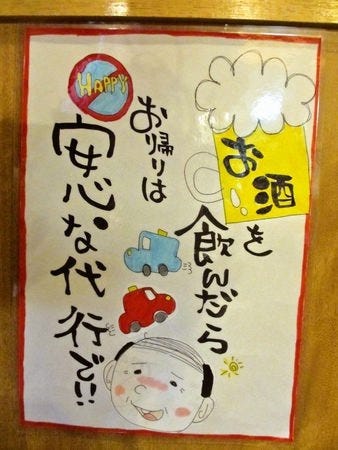 お酒を
飲んだら
お帰りは
安心な代行で!!
HAPPY